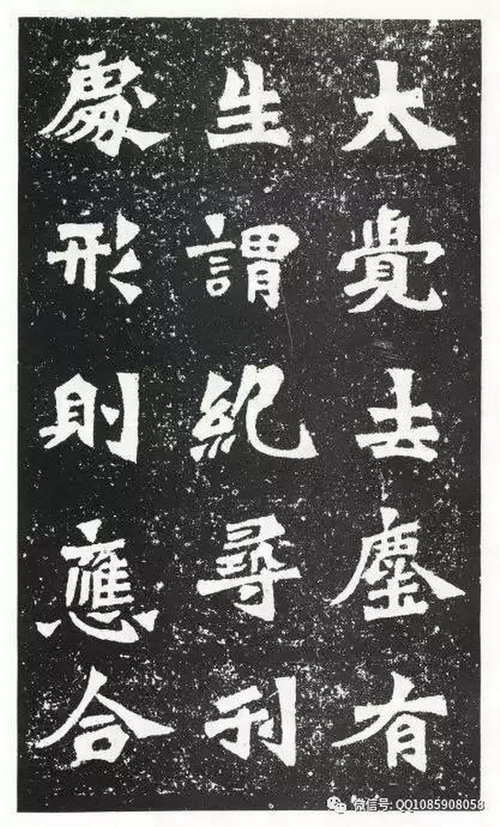 太覺去塵有
生謂紀尋刊
處形則應合
微信号: QQ1085908058